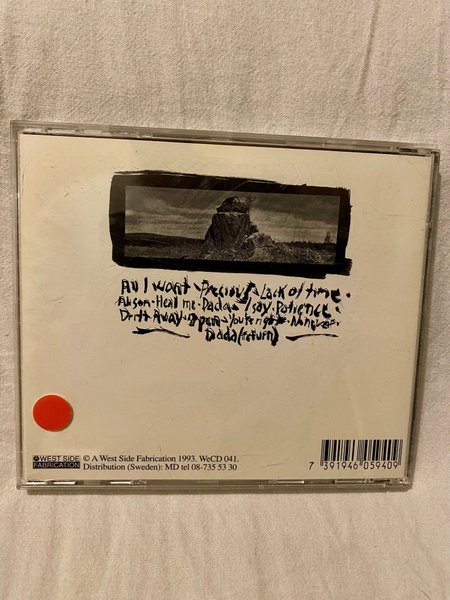 All I want · Precious · Lack of time ·
Alison · Heal me · Dada · I say · Patience ·
Drift Away · Open · You're right · No never ·
Dada (return)
WEST SIDE
FABRICATION
© A West Side Fabrication 1993. WeCD 041.
Distribution (Sweden): MD tel 08-735 53 30
7 391946 059409